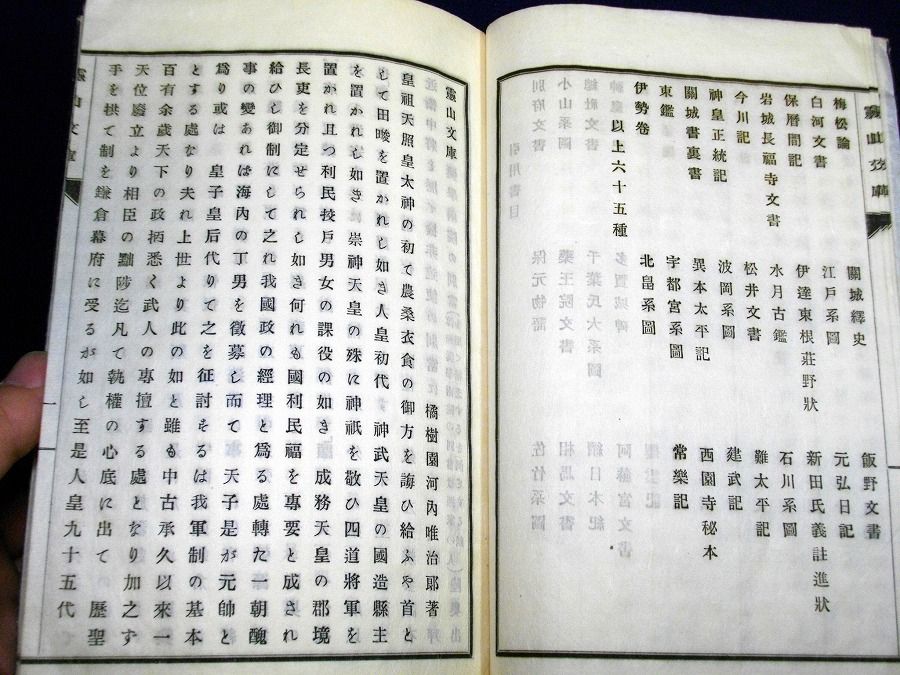 靈山文庫
梅松論
關城繹史
飯野文書
白河文書
江戶系圖
元弘日記
保暦間記
伊達東根莊野狀
新田氏義註進狀
岩城長福寺文書
水月古鑑
石川系圖
今川記
松井文書
難太平記
神皇正統記
波岡系圖
建武記
關城書裏書
異本太平記
西園寺秘本
東鑑
宇都宮系圖
常樂記
伊勢卷
北畠系圖
以上六十五種
靈山文庫
橘樹園河內唯治郎著
皇祖天照皇太神の初て農桑衣食の御方を誨ひ給ふや首と
して田畯を置かれし如き人皇初代　神武天皇の國造縣主
を置かれし如き　崇神天皇の殊に神祇を敬ひ四道將軍を
置かれ且つ利民挍戶男女の課役の如き成務天皇の郡境
長吏を分定せられし如き何れも國利民福を專要と成され
給ひし御制にして之れ我國政の經理と爲る處轉た一朝醜
事の變あれば海內の丁男を徵募して而て　天子是が元帥と
爲り或は　皇子皇后代りて之を征討するは我軍制の基本
とする處なり夫れ上世より此の如と雖も中古承久以來一
百有余歲天下の政柄悉く武人の專擅する處となり加之ず
天位廢立より相臣の黜陟迄凡て執權の心底に出て　歷聖
手を拱て制を鎌倉幕府に受るが如し至是人皇九十五代
靈山文庫
一